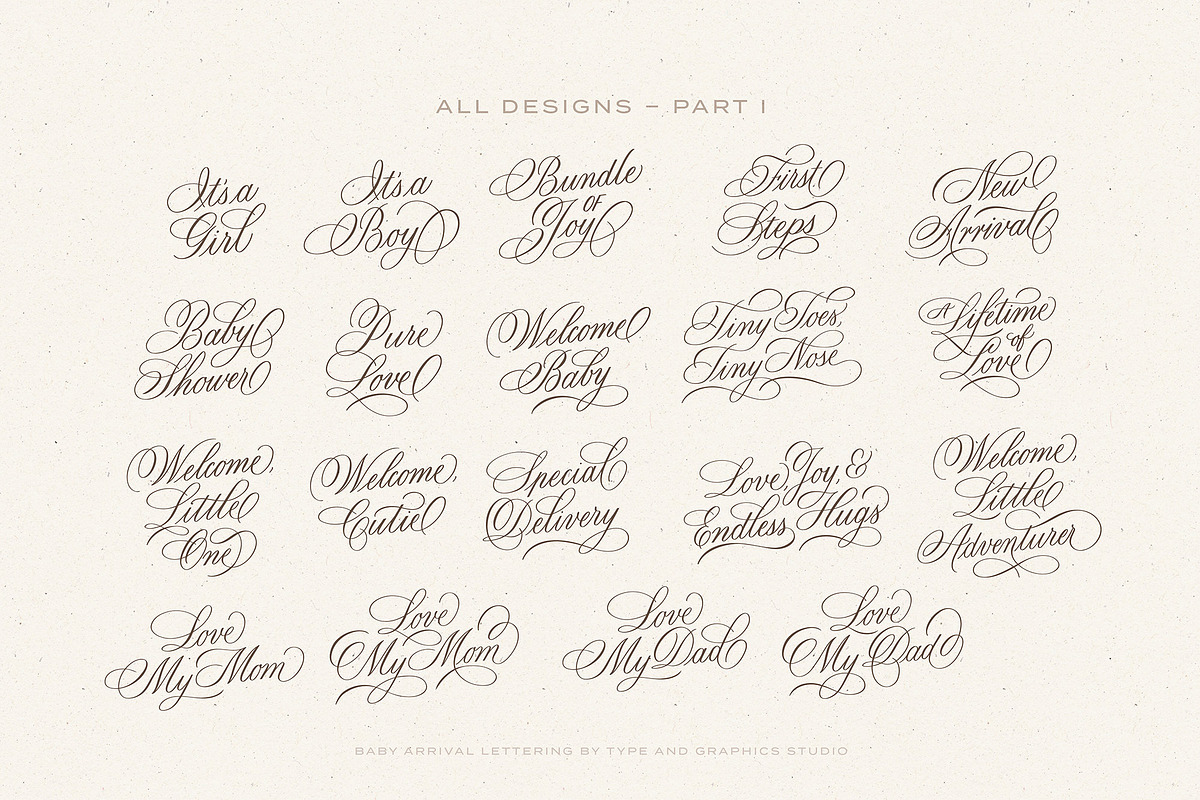 ALL DESIGNS – PART I
It's a
Girl
It's a
Boy
Bundle
OF
Joy
First
Steps
New
Arrival
Baby
Shower
Pure
Love
Welcome
Baby
Tiny Toes,
Tiny Nose
A Lifetime
of
Love
Welcome,
Little
One
Welcome,
Cutie
Special
Delivery
Love, Joy, &
Endless Hugs
Welcome,
Little
Adventurer
Love
My Mom
Love
My Mom
Love
My Dad
Love
My Dad
BABY ARRIVAL LETTERING BY TYPE AND GRAPHICS STUDIO